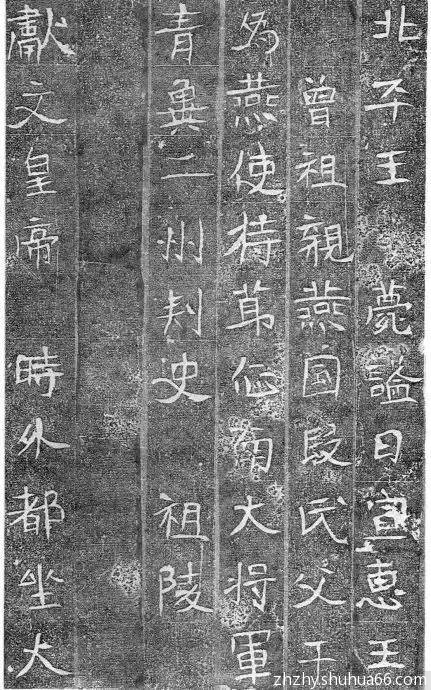 北平王 薨謚曰宣惠王
曾祖親燕国段氏父干
為燕使持莭征南大将軍
青冀二州刾史 祖陵
獻文皇帝 時外都坐大
zhzhy.shuhua66.com